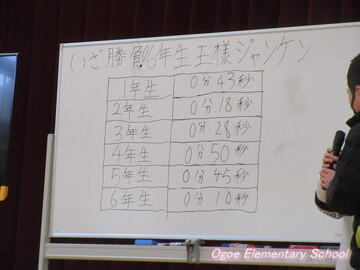 いざ勝負!6年生王様ジャンケン
1年生 0分43秒
2年生 0分18秒
3年生 0分28秒
4年生 0分50秒
5年生 0分45秒
6年生 0分10秒
Ogoe Elementary School